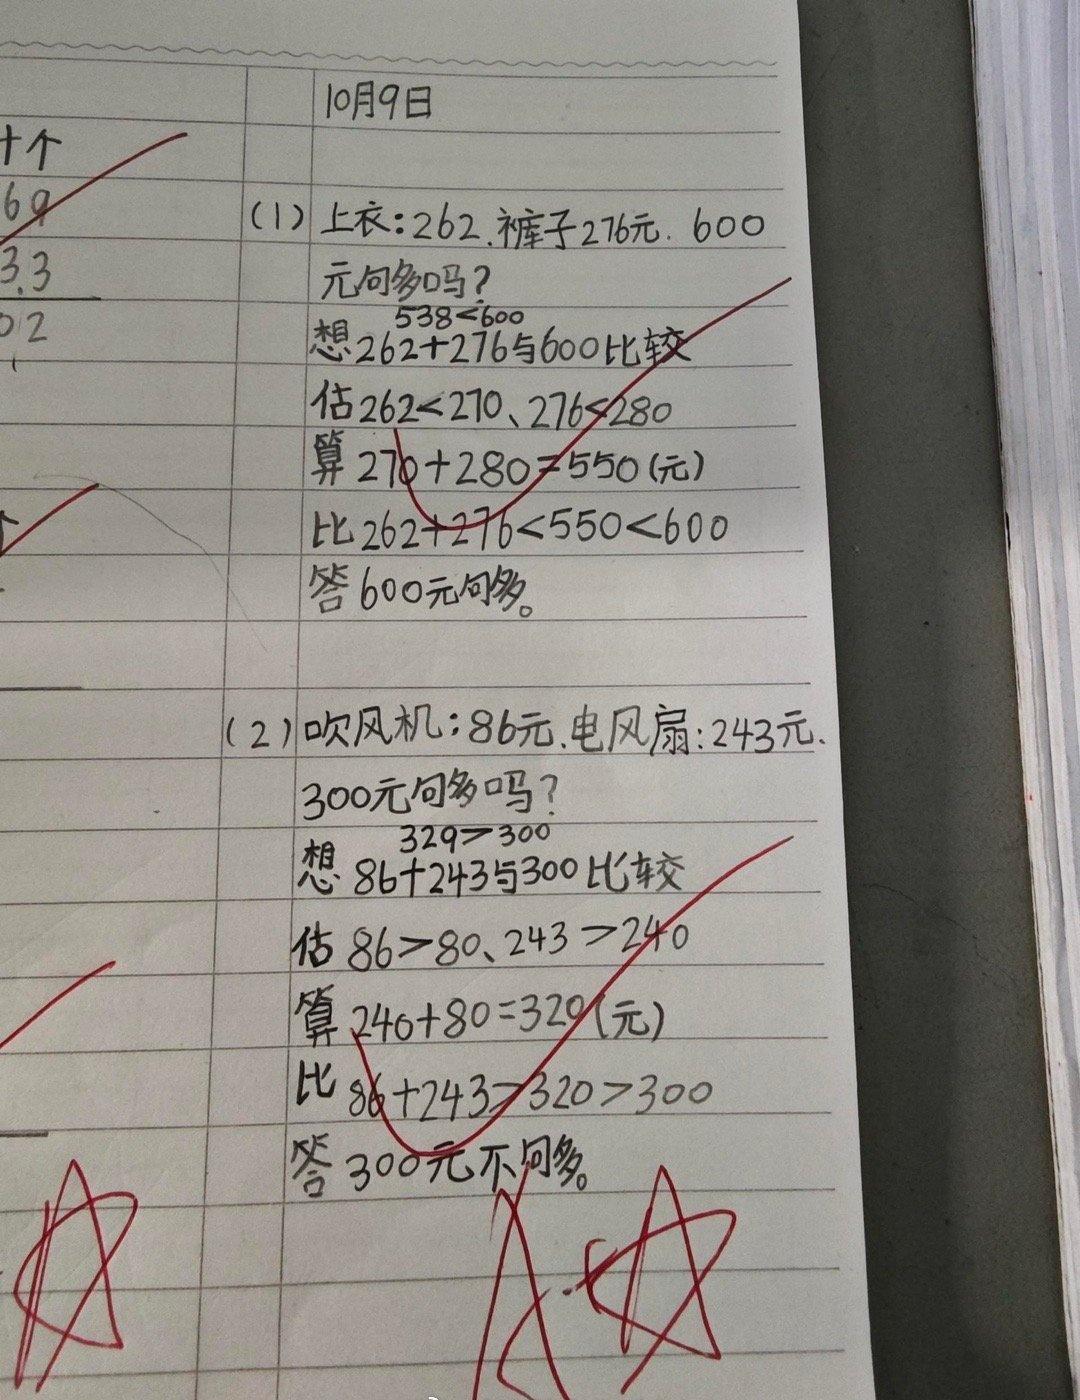 10月9日
十个
69
3.3
02
(1) 上衣:262.裤子276元. 600
元句多吗?
538<600
想 262+276与600比较
估 262<270、276<280
算 270+280=550(元)
比 262+276<550<600
答 600元句多。
(2) 吹风机:86元.电风扇:243元.
300元句多吗?
329>300
想 86+243与300比较
估 86>80、243>240
算 240+80=320(元)
比 86+243>320>300
答 300元不句多。